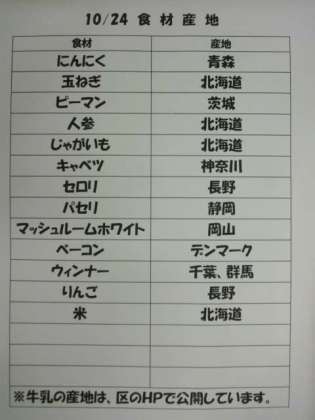 10/24 食材産地
食材 産地
にんにく 青森
玉ねぎ 北海道
ピーマン 茨城
人参 北海道
じゃがいも 北海道
キャベツ 神奈川
セロリ 長野
パセリ 静岡
マッシュルームホワイト 岡山
ベーコン デンマーク
ウィンナー 千葉、群馬
りんご 長野
米 北海道
※牛乳の産地は、区のHPで公開しています。